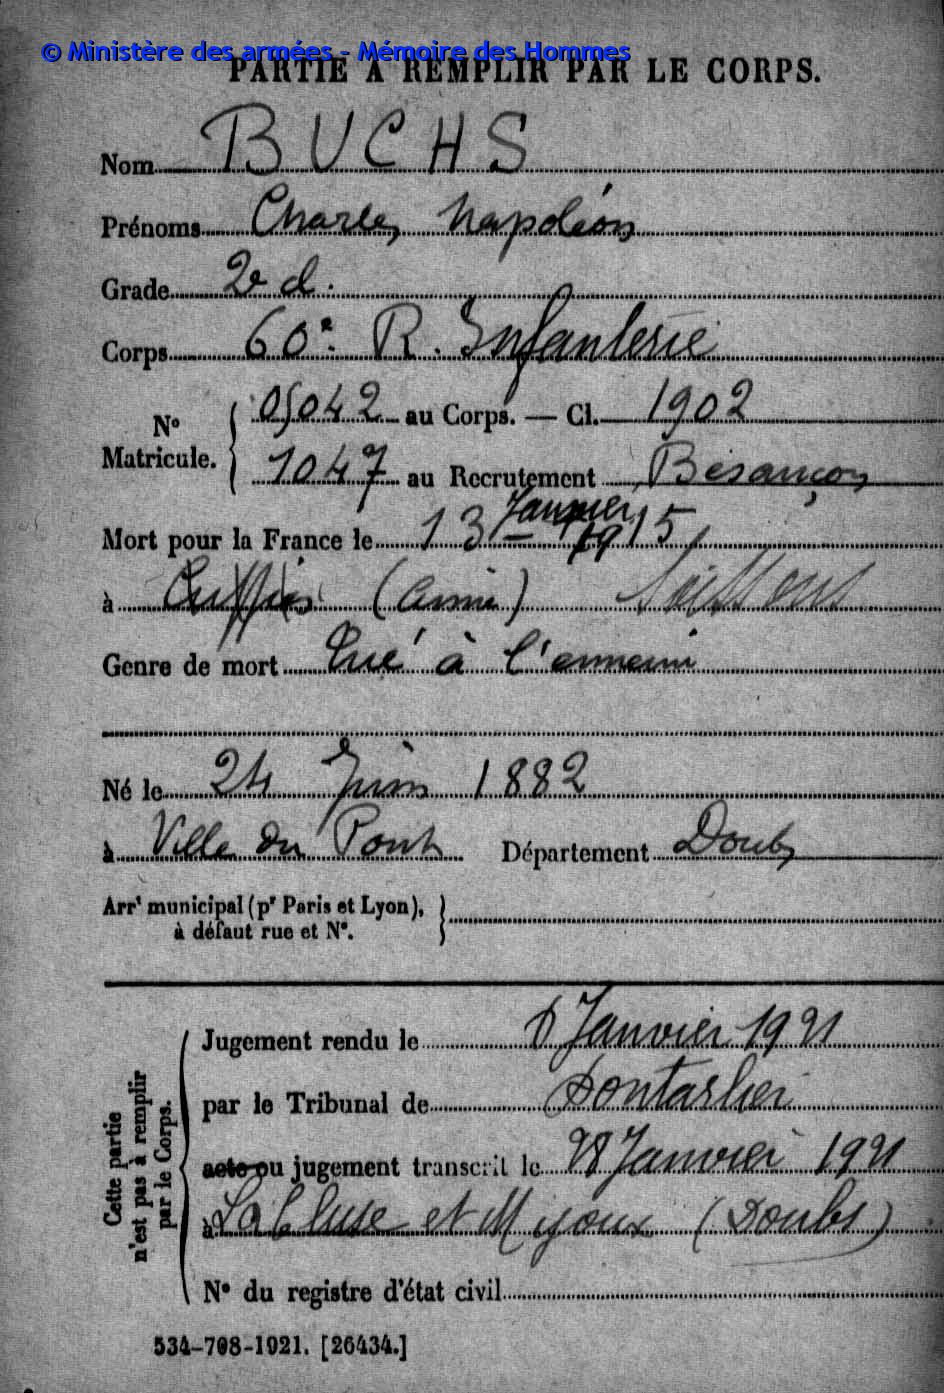 © Ministère des armées - Mémoire des Hommes
PARTIE À REMPLIR PAR LE CORPS.
Nom BUCHS
Prénoms Charles Napoléon
Grade 2e cl.
Corps 60e R. Infanterie
No Matricule. { 05042 au Corps. — Cl. 1902
1047 au Recrutement Besançon
Mort pour la France le 13 Janvier 1915
à Cuffies (Aisne) Soissons
Genre de mort Tué à l'ennemi
Né le 24 Juin 1882
à Ville du Pont Département Doubs
Arrt municipal (pr Paris et Lyon), à défaut rue et No. }
Cette partie n'est pas à remplir par le Corps.
Jugement rendu le 6 Janvier 1921
par le Tribunal de Pontarlier
acte ou jugement transcrit le 28 Janvier 1921
à La Cluse et Mijoux (Doubs)
No du registre d'état civil
534-708-1921. [26434.]